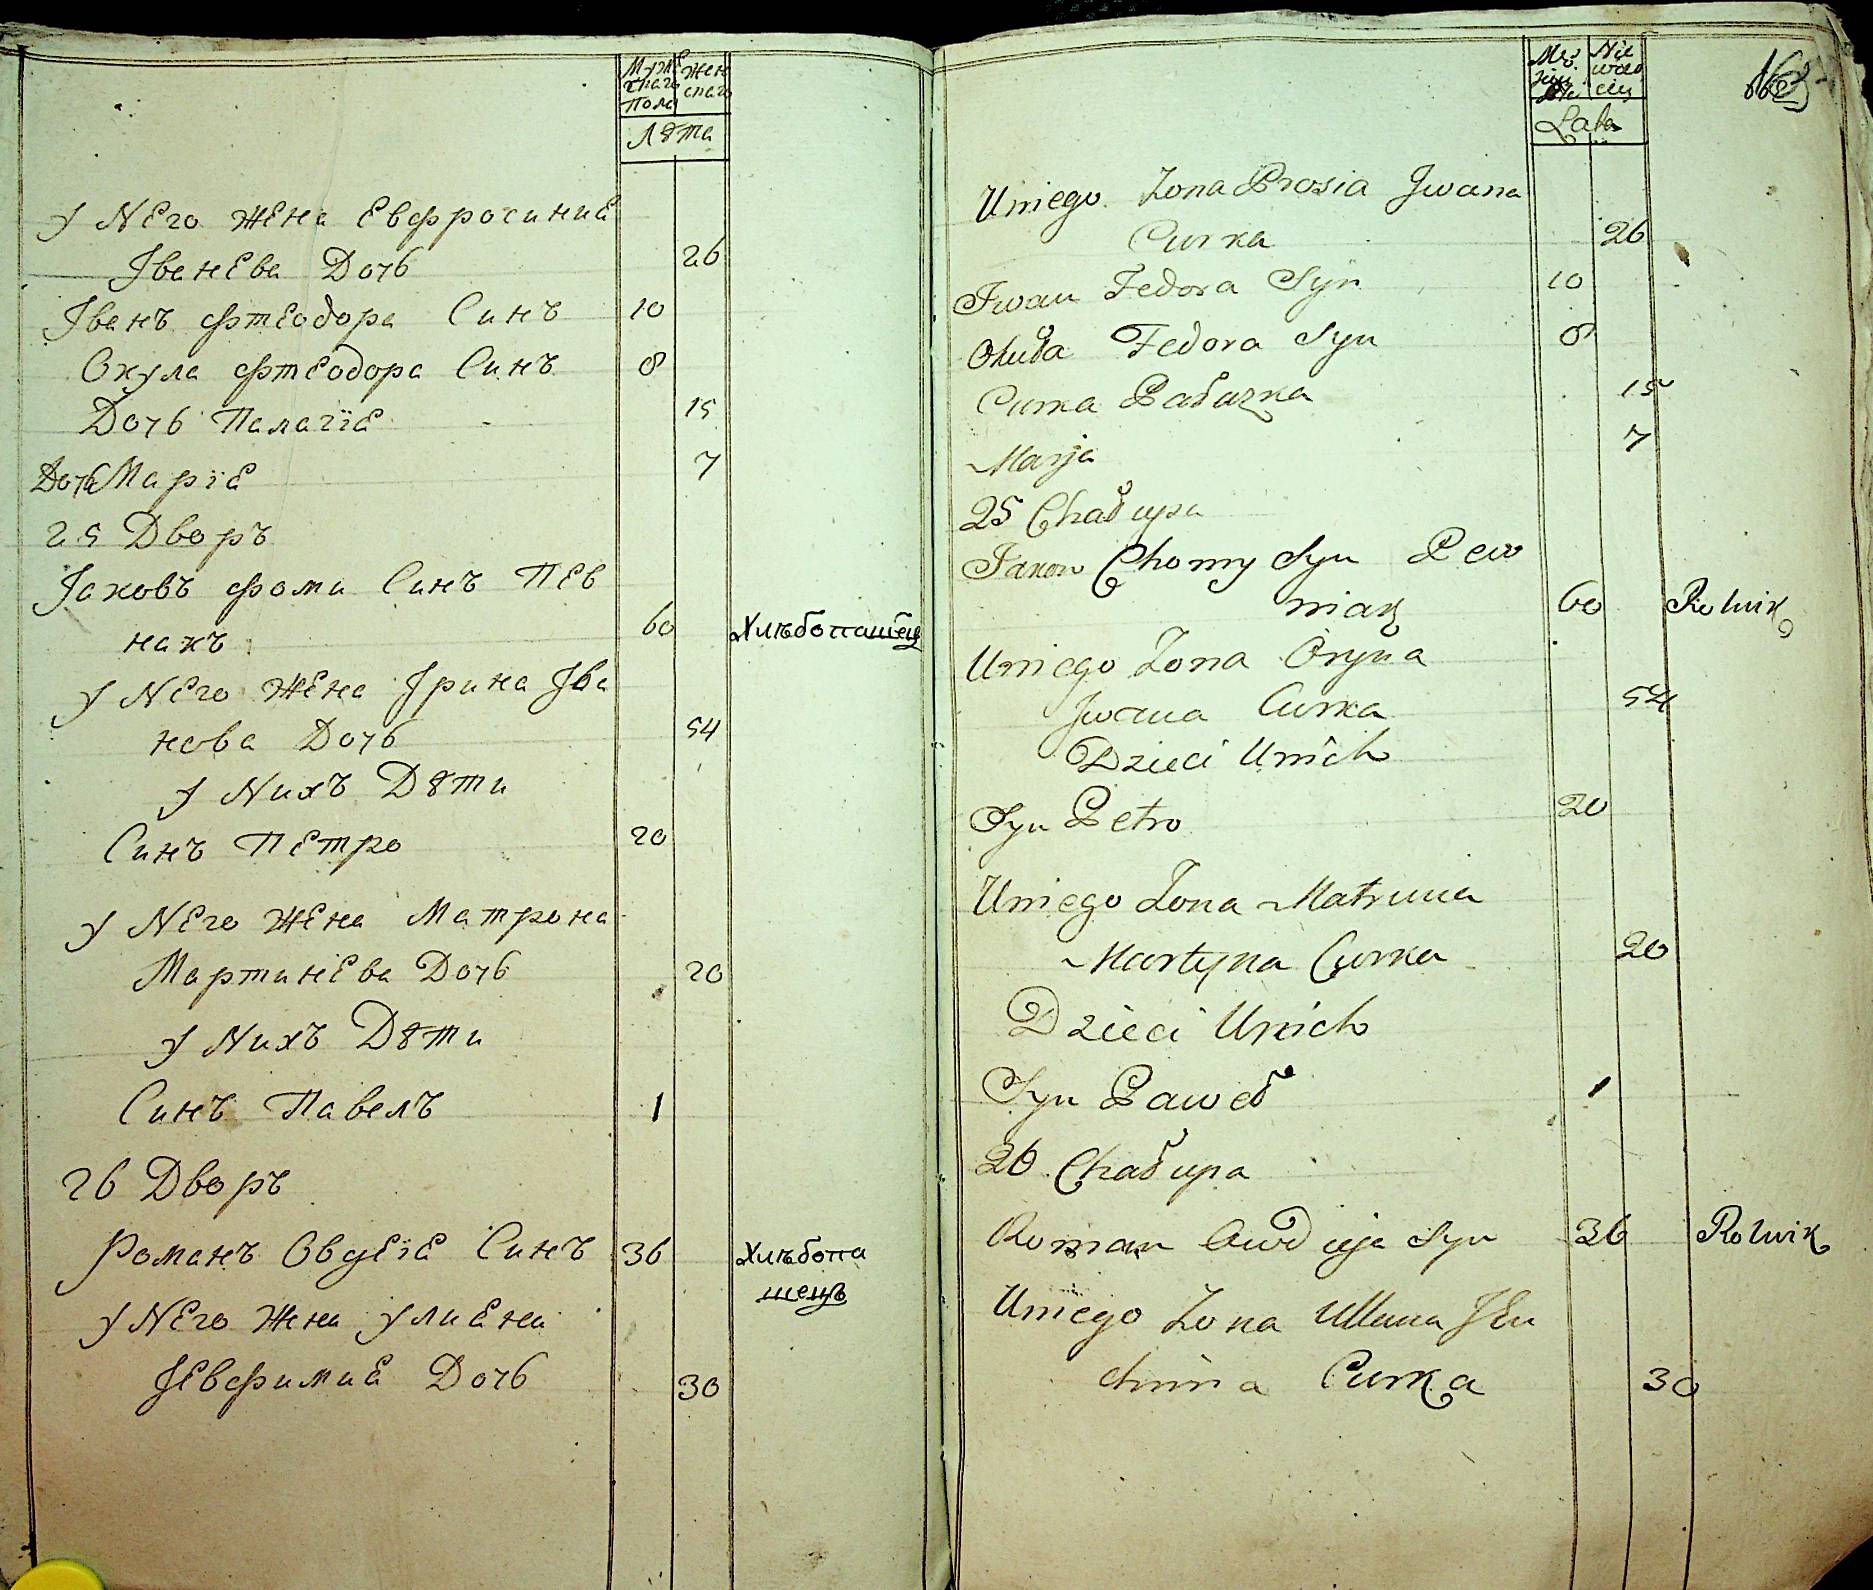 Мужескаго Пола Женскаго
Лѣта
У Него жена Евфросиние
Іванева Дочь 26
Іванъ Фтеодора Синъ 10
Окула Фтеодора Синъ 8
Дочь Палагіе 15
Дочь Маріе 7
25 Дворъ
Іаковъ Фоми Синъ Пев
накъ 60 Хлѣбопашец
У Него жена Ірина Іва
нова Дочь 54
У Нихъ Дѣти
Синъ Петро 20
У Него жена Матрона
Мартинева Дочь 20
У Нихъ Дѣти
Синъ Павелъ 1
26 Дворъ
Романъ Овдеіе Синъ 36 Хлѣбопа
шецъ
У Него жена Улиена
Іевфимие Дочь 30
Lata
Uniego Zona Prosia Jwana
Curka 26
Jwan Fedora Syn 10
Okuła Fedora Syn 8
Curka Pałazka 15
Marja 7
25 Chałupa
Jakow Chomy Syn Pew
niak 60 Rolnik
Uniego Zona Oryna
Jwana Curka 54
Dzieci Unich
Syn Petro 20
Uniego Zona Matruna
Martyna Curka 20
Dzieci Unich
Syn Paweł 1
26 Chałupa
Roman Awdieja Syn 36 Rolnik
Uniego Zona Ullana JEu
chima Curka 30